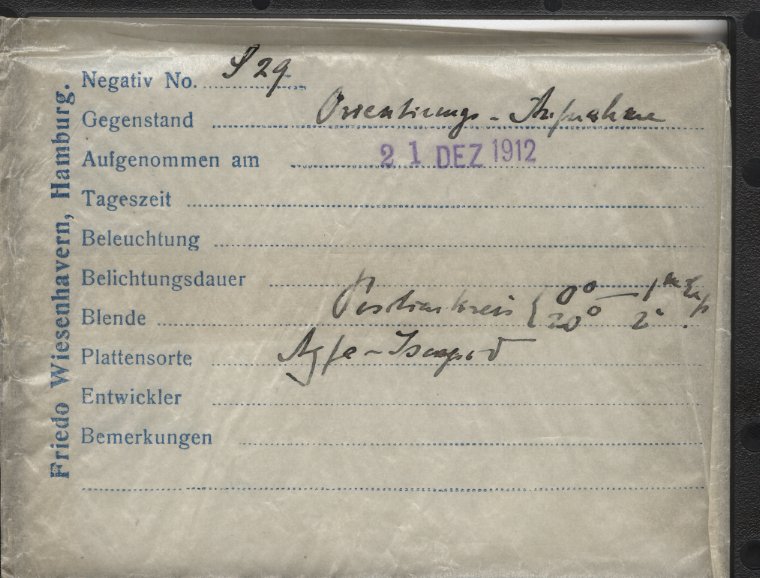 Friedo Wiesenhavern, Hamburg.
Negativ No. S 29
Gegenstand Orientirungs-Aufnahme
Aufgenommen am 21 DEZ 1912
Tageszeit
Beleuchtung
Belichtungsdauer
Blende Positionskreis { 0° — 1te Exp
20° 2e "
Plattensorte Agfa-Isorapid
Entwickler
Bemerkungen